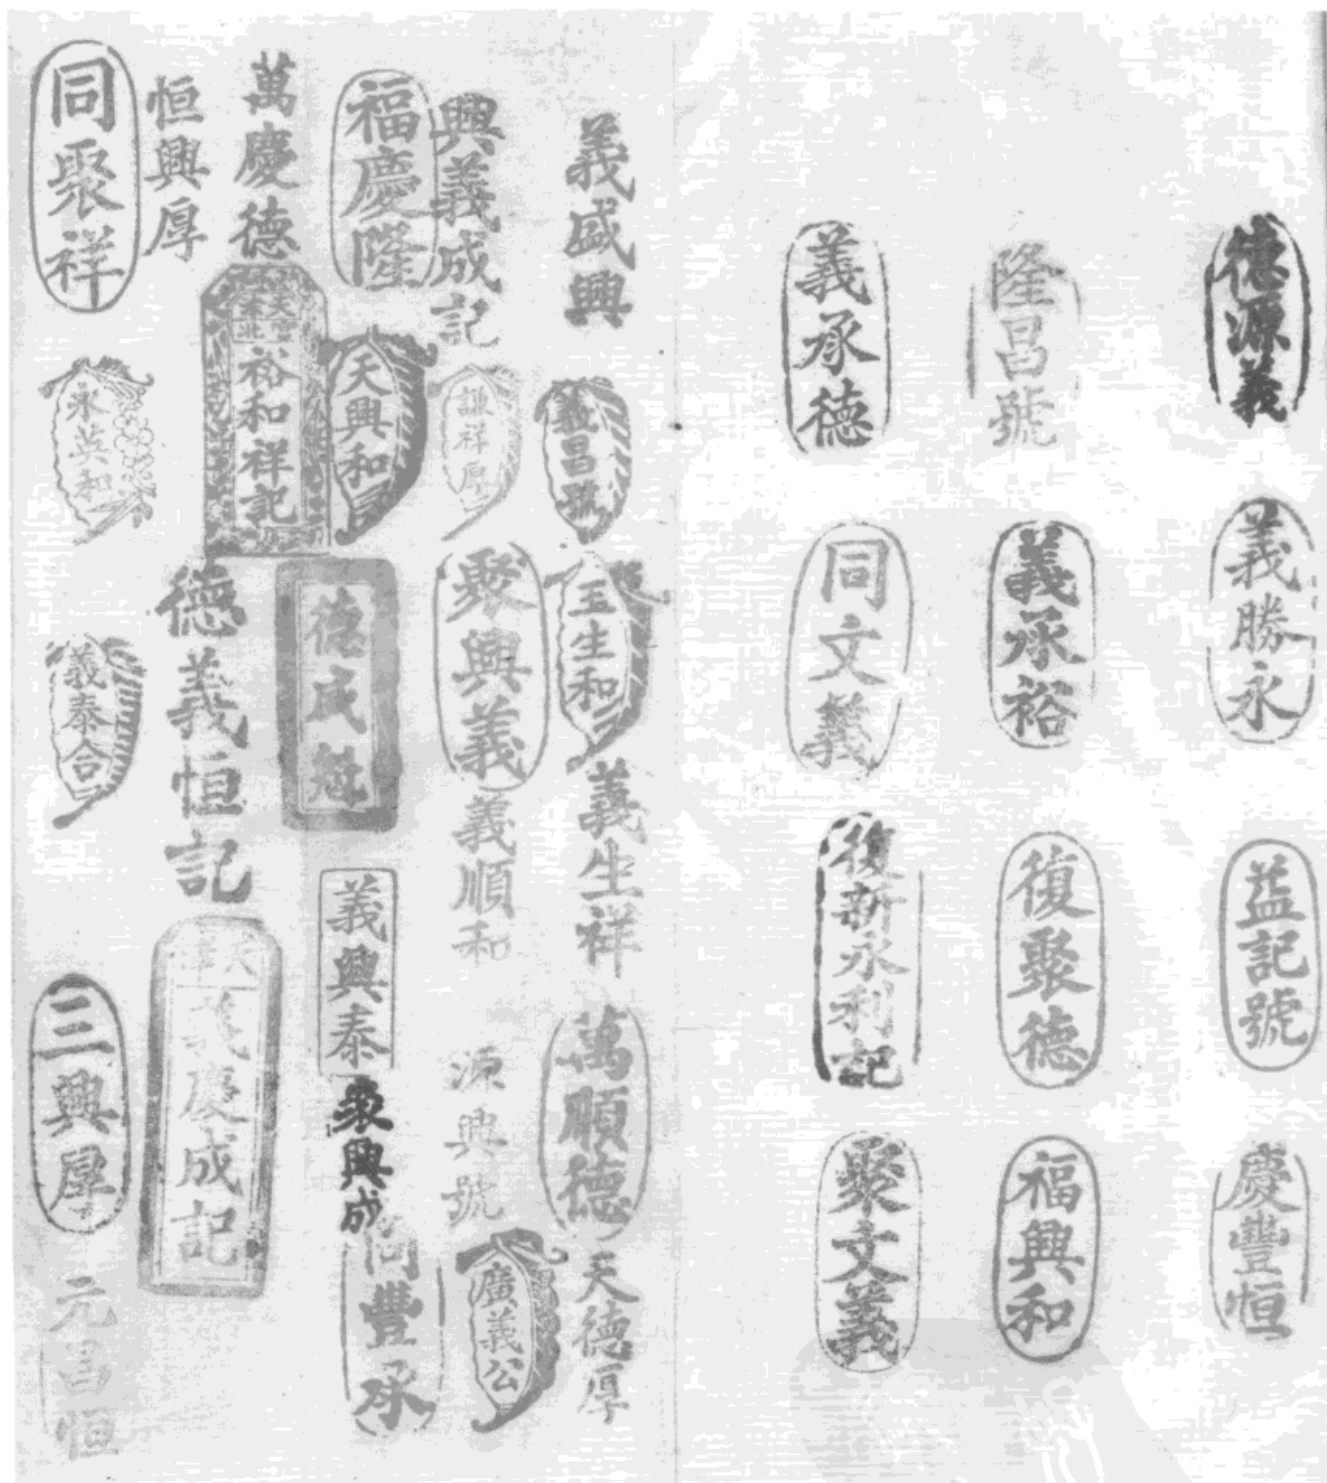 德源義
義勝永
益記號
慶豐恒
隆昌號
義承裕
復聚德
福興和
義承德
同文義
復新永利記
聚文義
義盛興
義昌號
玉生和
義生祥
萬順德
天德厚
興義成記
謙祥厚
聚興義
義順和
源興號
廣義公
福慶隆
天興和
德成
義興泰
聚興成
同豐承
萬慶德
裕和祥記
德義恒記
義慶成記
恒興厚
同聚祥
永英和
義泰合
三興厚
元昌恒